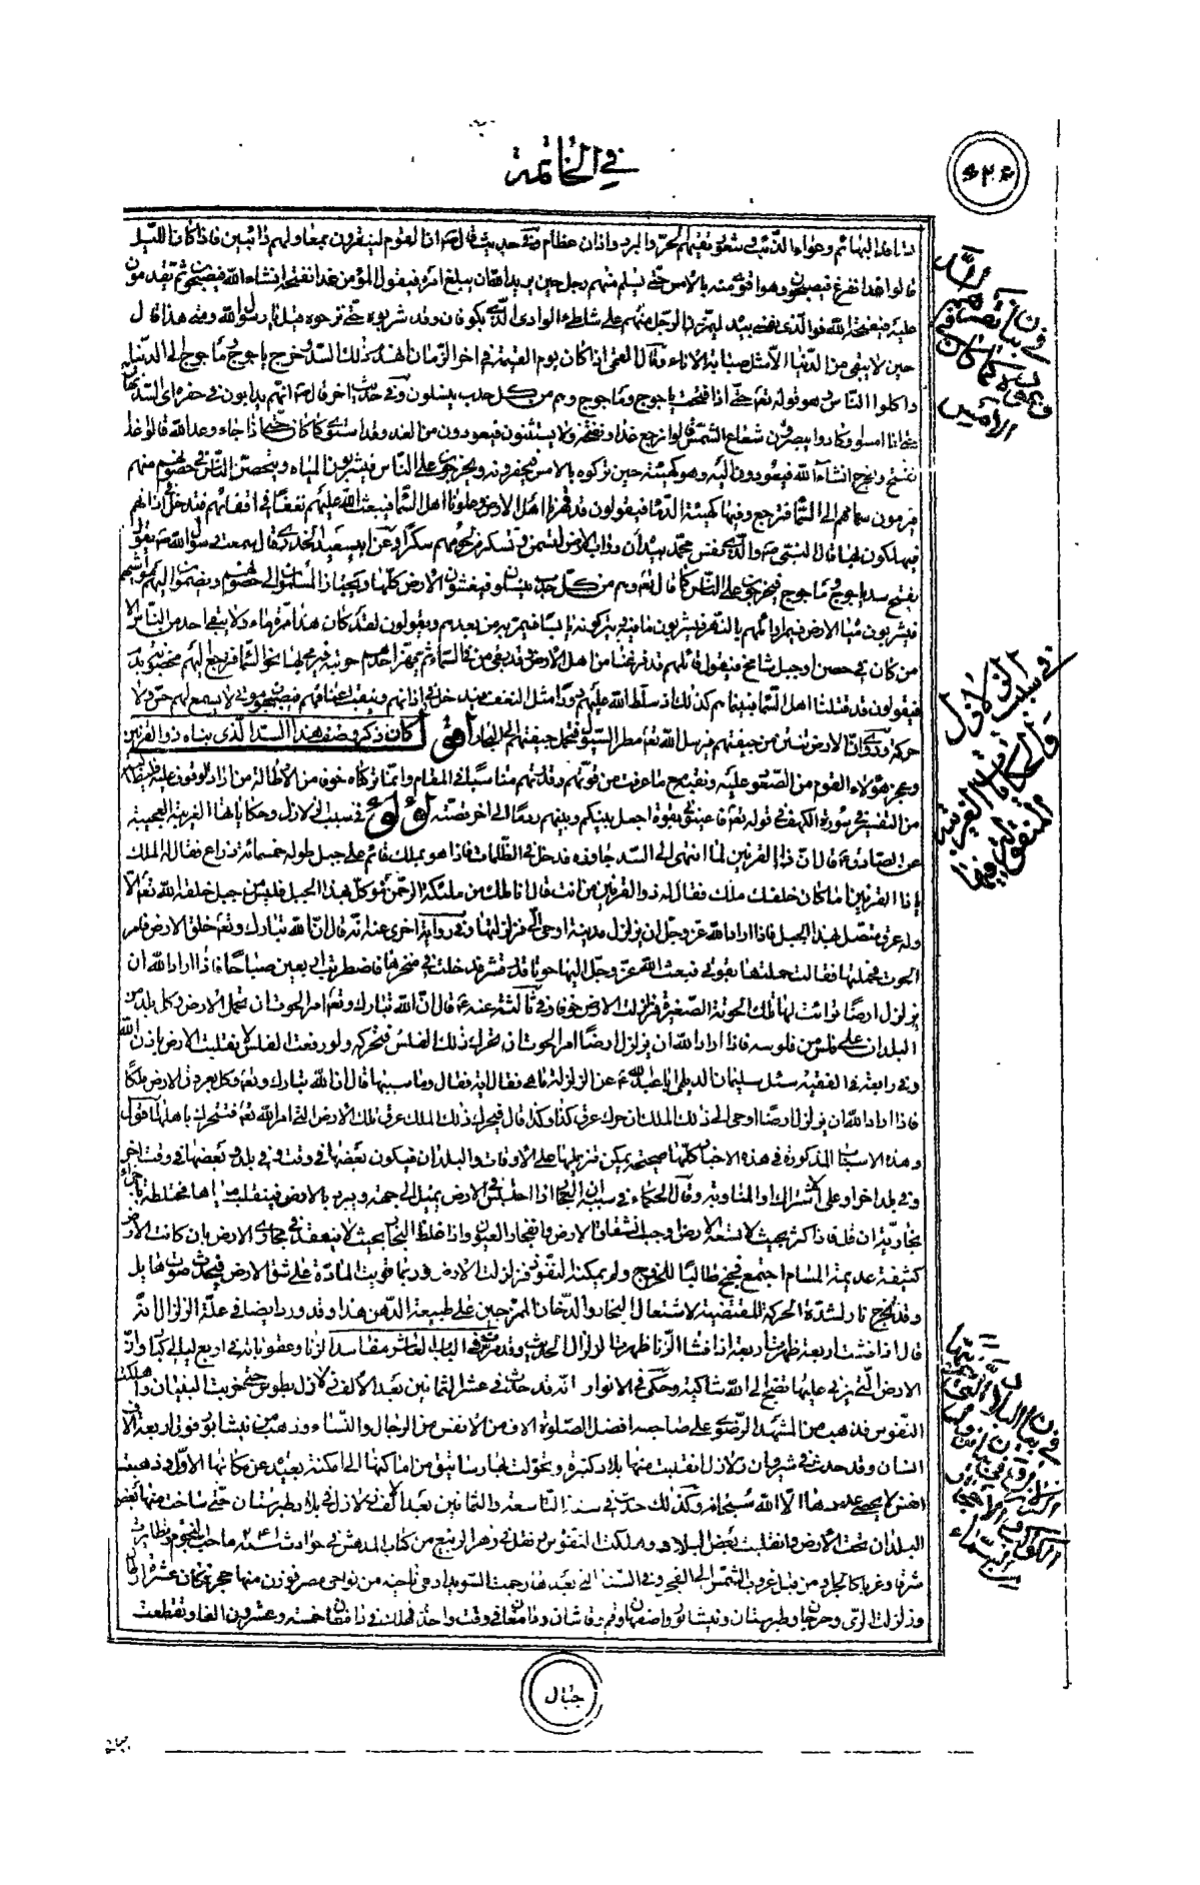 في الخاتمة
تداعد البهائم وعواء الذئب وشعور تقيهم الحر والبرد واذان عظام وفي حديث قال ان القوم لينقرون بمعاولهم دائبين فاذا كان الليل
قالوا غدا نفرغ فيصبحون وهو اقوى منه بالامس حتى يسلم منهم رجل حين يريد الله ان يبلغ امره فيقول المؤمن غدا نفتحه انشاء الله فيصبحون ثم يغدون
عليه فيفتحه الله فوالذي نفسي بيده ليمرن الرجل منهم على شاطئ الوادي الذي بكوفان وقد شربوه حتى نزحوه قيل يا رسول الله ومتى هذا قال
حين لا يبقى من الدنيا الا مثل صبابة الاناء وقال القمي اذا كان يوم القيمة في اخر الزمان انهدم ذلك السد وخرج ياجوج وماجوج الى الدنيا
واكلوا الناس وهو قوله تعالى حتى اذا فتحت ياجوج وماجوج وهم من كل حدب ينسلون وفي حديث اخر قال انهم يدابون في حفرهم
حتى اذا امسوا وكادوا يبصرون شعاع الشمس قالوا نرجع غدا ونفتحه ولا يستثنون فيعودون من الغد وقد استوى كما كان حتى اذا جاء وعد الله قالوا غدا
نفتح ونخرج انشاء الله فيعودون اليه وهو كهيئته حين تركوه بالامس فيخرقونه ويخرجون على الناس فيشربون المياه ويتحصن الناس في حصونهم منهم
فيرمون سهامهم الى السماء فترجع وفيها كهيئة الدماء فيقولون قد قهرنا اهل الارض وعلونا اهل السماء فيبعث الله عليهم نغفا في اقفائهم فتدخل اذانهم
فيهلكون بها قال النبي والذي نفس محمد بيده ان دواب الارض لتسمن وتسكر من لحومهم سكرا وعن ابي سعيد الخدري قال سمعت رسول الله يقول
يفتح سد ياجوج وماجوج فيخرجون على الناس كما قال تعالى وهم من كل حدب ينسلون فيغشون الارض كلها وينحاز المسلمون الى حصونهم ويضمون اليهم مواشيهم
فيشربون مياه الارض فيمر اوائلهم بالنهر فيشربون ما فيه ويتركونه يابسا فيمر به من بعدهم ويقولون لقد كان هنا مرة ماء ولا يبقى احد من الناس الا
من كان في حصن او جبل شامخ فيقول قائلهم قد فرغنا من اهل الارض قد بقي من في السماء ثم يهز احدهم حربته فيرمي بها نحو السماء فترجع اليهم مخضوبة بدم
فيقولون قد قتلنا اهل السماء فبيناهم كذلك اذ سلط الله عليهم دودا مثل النغف فيدخل في اذانهم وينقب اعناقهم فيصبحون موتى لا يسمع لهم حس ولا
حركة وروى ان الارض تنتن من جيفتهم فيرسل الله تعالى مطر السيل فتحمل جيفتهم الى البحار اقول كان ذكر وصف هذا السد الذي بناه ذو القرنين
وعجز هؤلاء القوم من الصعود عليه ونقبه مع ما عرفت من قوتهم وقدرتهم مناسبا في المقام وانما تركناه خوف من الاطالة من اراد الوقوف عليه
من التفسير في سورة الكهف في قوله تعالى فاعينوني بقوة اجعل بينكم وبينهم ردما الى اخر قصته لؤلؤ في سبب الزلازل وحكاياتها الغريبة العجيبة
عن الصادق قال ان ذا القرنين لما انتهى الى السد جاوزه فدخل في الظلمات فاذا هو بملك قائم على جبل طوله خمسمائة ذراع فقال له الملك
يا ذا القرنين اما كان خلفك مسلك فقال له ذو القرنين من انت قال انا ملك من ملئكة الرحمن موكل بهذا الجبل فليس من جبل خلقه الله تعالى الا
وله عرق متصل بهذا الجبل فاذا اراد الله عز وجل ان يزلزل مدينة اوحى الي فزلزلتها وفي رواية اخرى عنه انه قال ان الله تبارك وتعالى خلق الارض فامر
الحوت فحملتها فقالت حملتها بقوتي فبعث الله عز وجل اليها حوتا قدر فتر فدخلت في منخرها فاضطربت اربعين صباحا فاذا اراد الله ان
يزلزل ارضا تراءت لها تلك الحوتة الصغيرة فزلزلت الارض خوفا وفي ثالثة عنه قال ان الله تبارك وتعالى امر الحوت ان تحمل الارض وكل بلد من
البلدان على فلس من فلوسه فاذا اراد الله ان يزلزل ارضا امر الحوت ان تحرك ذلك الفلس فتحركه ولو رفعت الفلس لانقلبت الارض باذن الله
وفي رابعة في الفقيه سئل سليمان الديلمي ابا عبد الله عن الزلزلة ما هي فقال اية فقال وما سببها قال ان الله تبارك وتعالى وكل بعروق الارض ملكا
فاذا اراد الله ان يزلزل ارضا اوحى الى ذلك الملك ان حرك عرق كذا وكذا قال فيحرك ذلك الملك عرق تلك الارض التي امر الله تعالى فتتحرك باهلها اقول
وهذه الاسباب المذكورة في هذه الاخبار كلها صحيحة يمكن تنزيلها على الاوقات والبلدان فيكون بعضها في وقت وفي بلد وبعضها في وقت اخر
وفي بلد اخر او على الاشتراك او المناوبة وقال الحكماء في سببه ان البخار اذا احتبس في الارض يميل الى جهة ويبرد بالارض فينقلب مياها مختلطة باجزاء
بخارية ان قلة فاذا كثر بحيث لا تسعه الارض وجب انشقاق الارض وانفجار العيون واذا غلظ البخار بحيث لا ينفذ في مجاري الارض بان كانت الارض
كثيفة عديمة المسام اجتمع فيخرج طالبا للخروج ولم يمكنه النفوذ فزلزلت الارض وربما قويت المادة على شق الارض فيحدث صوت هايل
وقد يخرج نار لشدة الحركة المقتضية لاشتعال البخار والدخان الممتزجين على طبيعة الدهن هذا وقد ورد ايضا في علة الزلزال انه
قال اذا فشت اربعة ظهرت اربعة اذا فشا الزنا ظهرت الزلزال الحديث وقد مر في الباب العاشر مفاسد الزنا وعقوباته في اربع لئالي كبار وان
الارض التي يزنى عليها تضج الى الله شاكية وحكى في الانوار انه قد حدث في عشر الثمانين بعد الالف في زلازل بطوس حتى خربت البنيان واهلكت
النفوس فذهب من المشهد الرضوي على صاحبه افضل الصلوة الاف من الانفس من الرجال والنساء وذهب من نيشابور فوق اربعة الاف
انسان وقد حدث في شيروان زلازل انقلبت منها بلاد كثيرة وتحولت بها رساتيق من اماكنها الى امكنة بعيد عن مكانها الاول وذهبت
انفس لا يحصى عددها الا الله سبحانه وكذلك حدث في سنة التاسعة والثمانين بعد الالف زلازل في بلاد طبرستان حتى ساخت منها بعض
البلدان تحت الارض وانقلبت بعض البلاد وهلكت النفوس نقل في زهر الربيع من كتاب المدهش في حوادث سنة ٢٤١ ماجت النجوم وتطايرت
شرقا وغربا كالجراد من قبل غروب الشمس الى الفجر وفي السنة التي بعدها رجمت السويداء وهي ناحية من نواحي مصر فوزن منها حجر فكان عشرة ارطال
وزلزلت الري وجرجان وطبرستان ونيشابور واصفهان وقم وقاشان ودامغان في وقت واحد فهلك في دامغان خمسة وعشرون الفا وتقطعت
جبال
في سبب الزلازل
وحكاياتها الغريبة